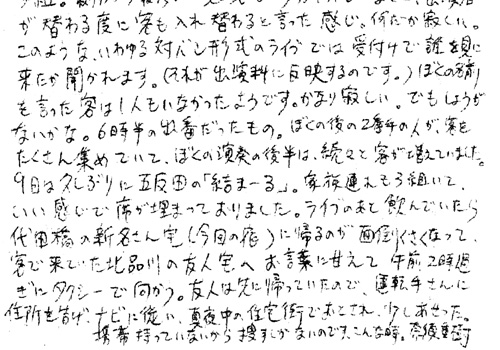 が替わる度に客も入れ替わると言った感じ。何だか寂しい。
このような、いわゆる対バン形式のライブでは受付けで誰を見に
来たか聞かれます。(それが出演料に反映するのです。)ぼくの名前
を言った客は1人もいなかったようです。かなり寂しい。でもしょうが
ないかな。6時半の出番だったもの。ぼくの後の2番手の人が、客を
たくさん集めていて、ぼくの演奏の後半は、続々と客が増えていました。
9日は久しぶりに五反田の「結まーる」。家族連れも3組いて、
いい感じで席が埋まっておりました。ライブのあと飲んでいたら
代田橋の新名さん宅(今回の宿)に帰るのが面倒くさくなって、
客で来ていた北品川の友人宅へお言葉に甘えて午前2時過
ぎにタクシーで向かう。友人は先に帰っていたので、運転手さんに
住所を告げ、ナビに従い、真夜中の住宅街でおとされ、少しあせった。
携帯持っていないから捜すしかないのです、こんな時。奈須重樹